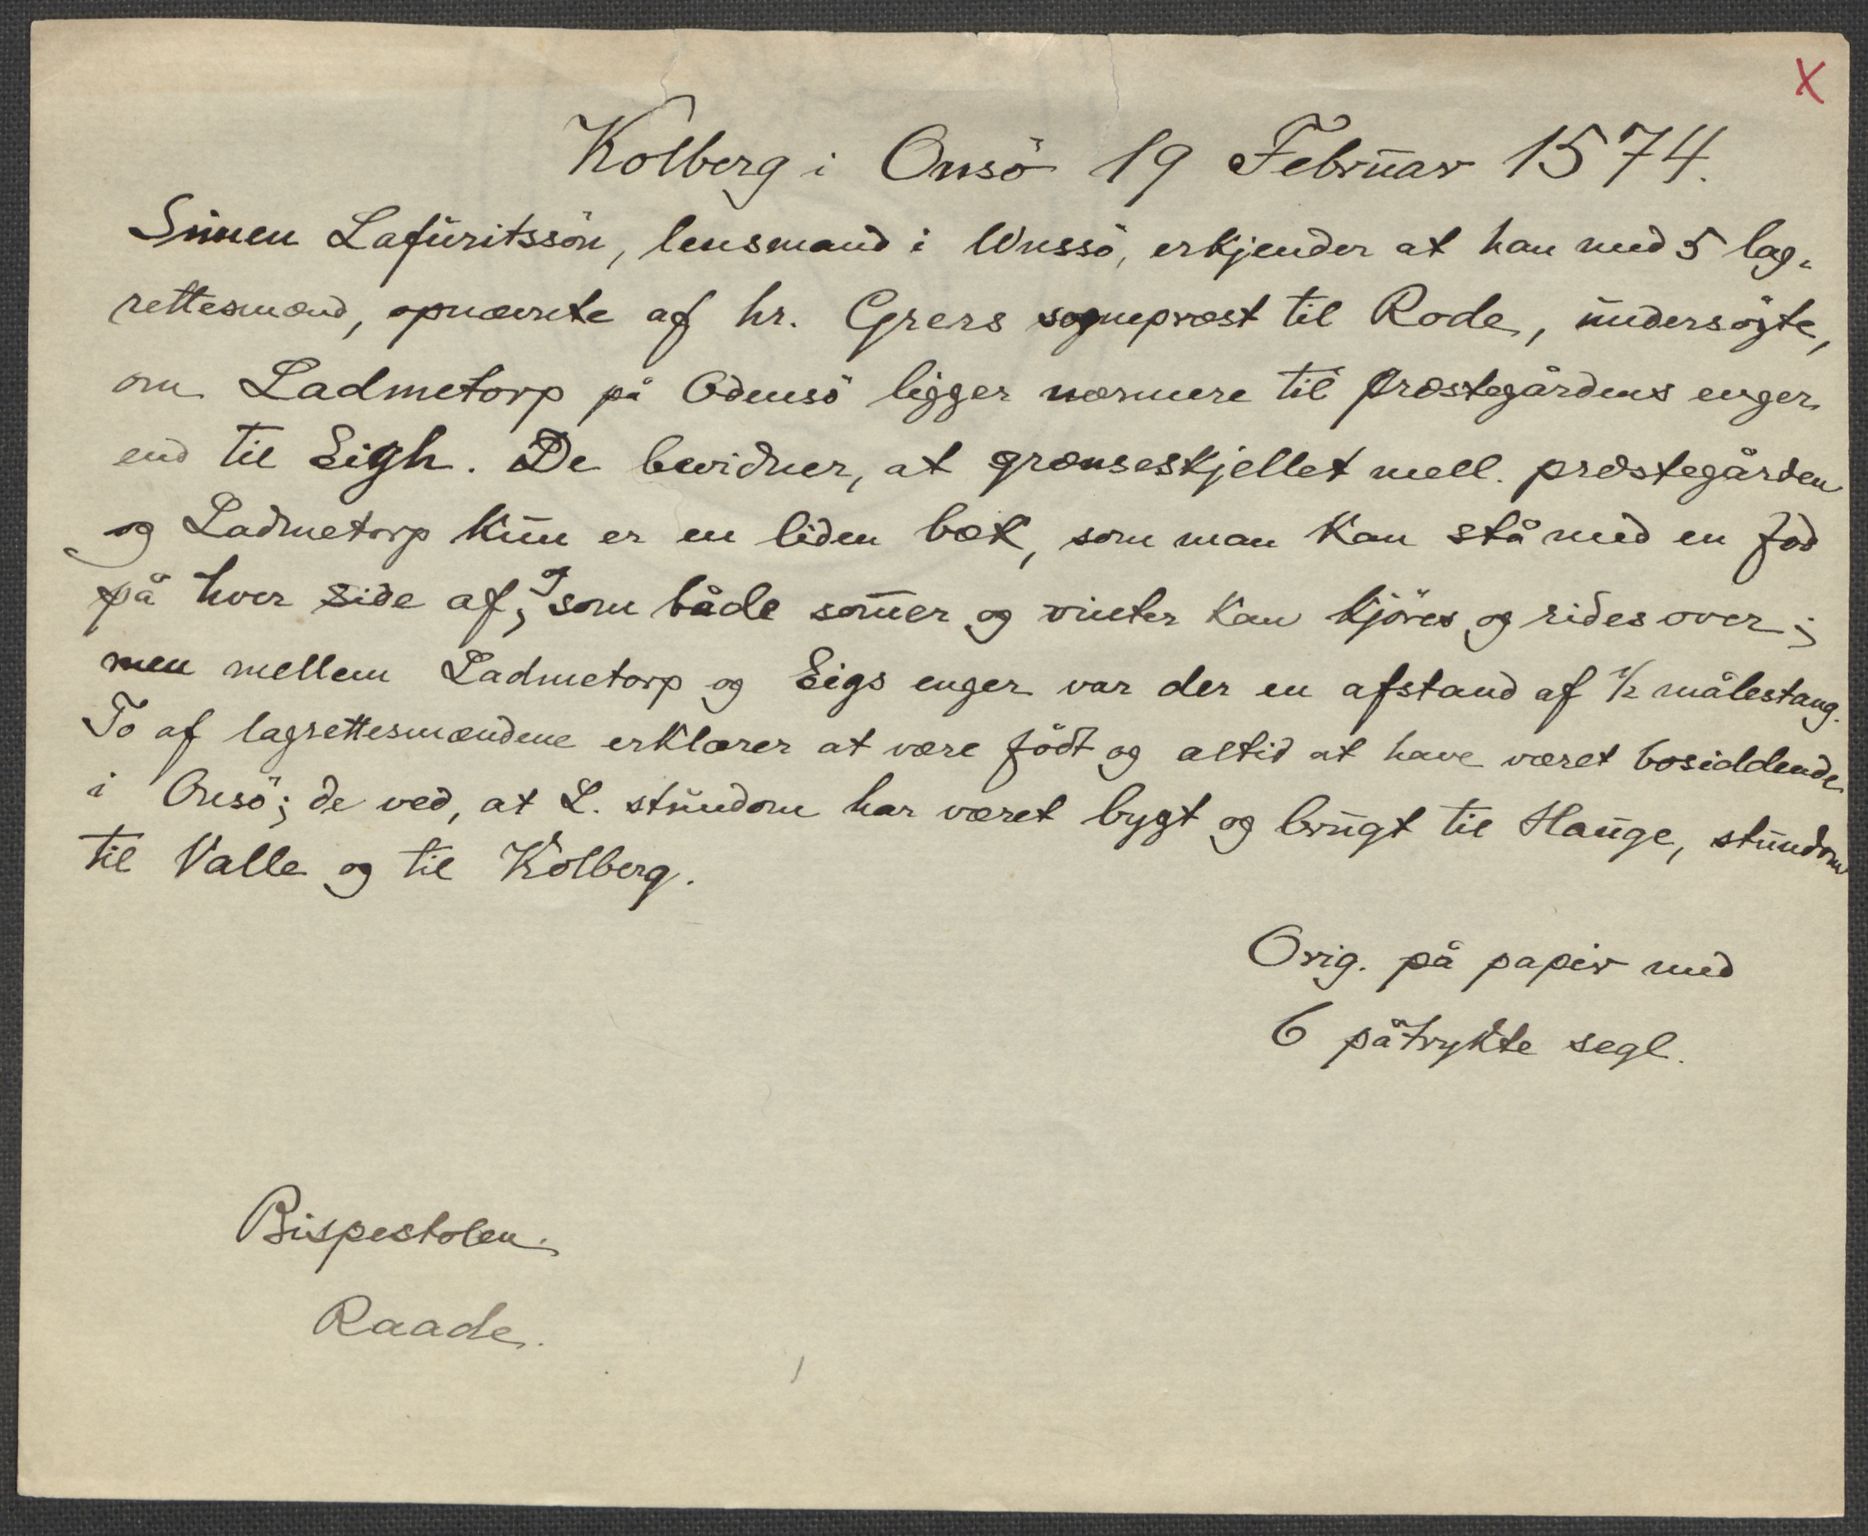 X
Kolberg i Onsö 19 Februar 1574.
Simen Lafuritssön, lensmand i Wnssö, erkjender at han med 5 lag-
rettesmænd, opnævnte af hr. Grers sognepræst til Rode, undersögte,
om Ladmetorp på Odensö ligger nærmere til præstegårdens enger
end til Eigh. De bevidner, at grænseskjellet mell. præstegården
og Ladmetorp kun er en liden bæk, som man kan stå med en fod
på hver side af, og som både som̄er og vinter kan kjöres og rides over;
men mellem Ladmetorp og Eigs enger var der en afstand af 1/2 målestang.
To af lagrettesmændene erklærer at være födt og altid at have været bosiddende
i Onsö; de ved, at L. stundom har været bygt og brugt til Hauge, stundom
til Valle og til Kolberg.
Orig. på papir med
6 påtrykte segl.
Bispestolen.
Raade.